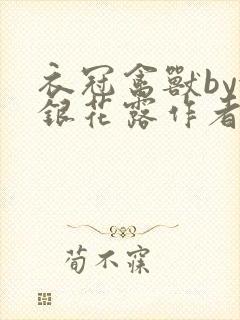 衣冠禽獸by
銀花露作者
荀不寐